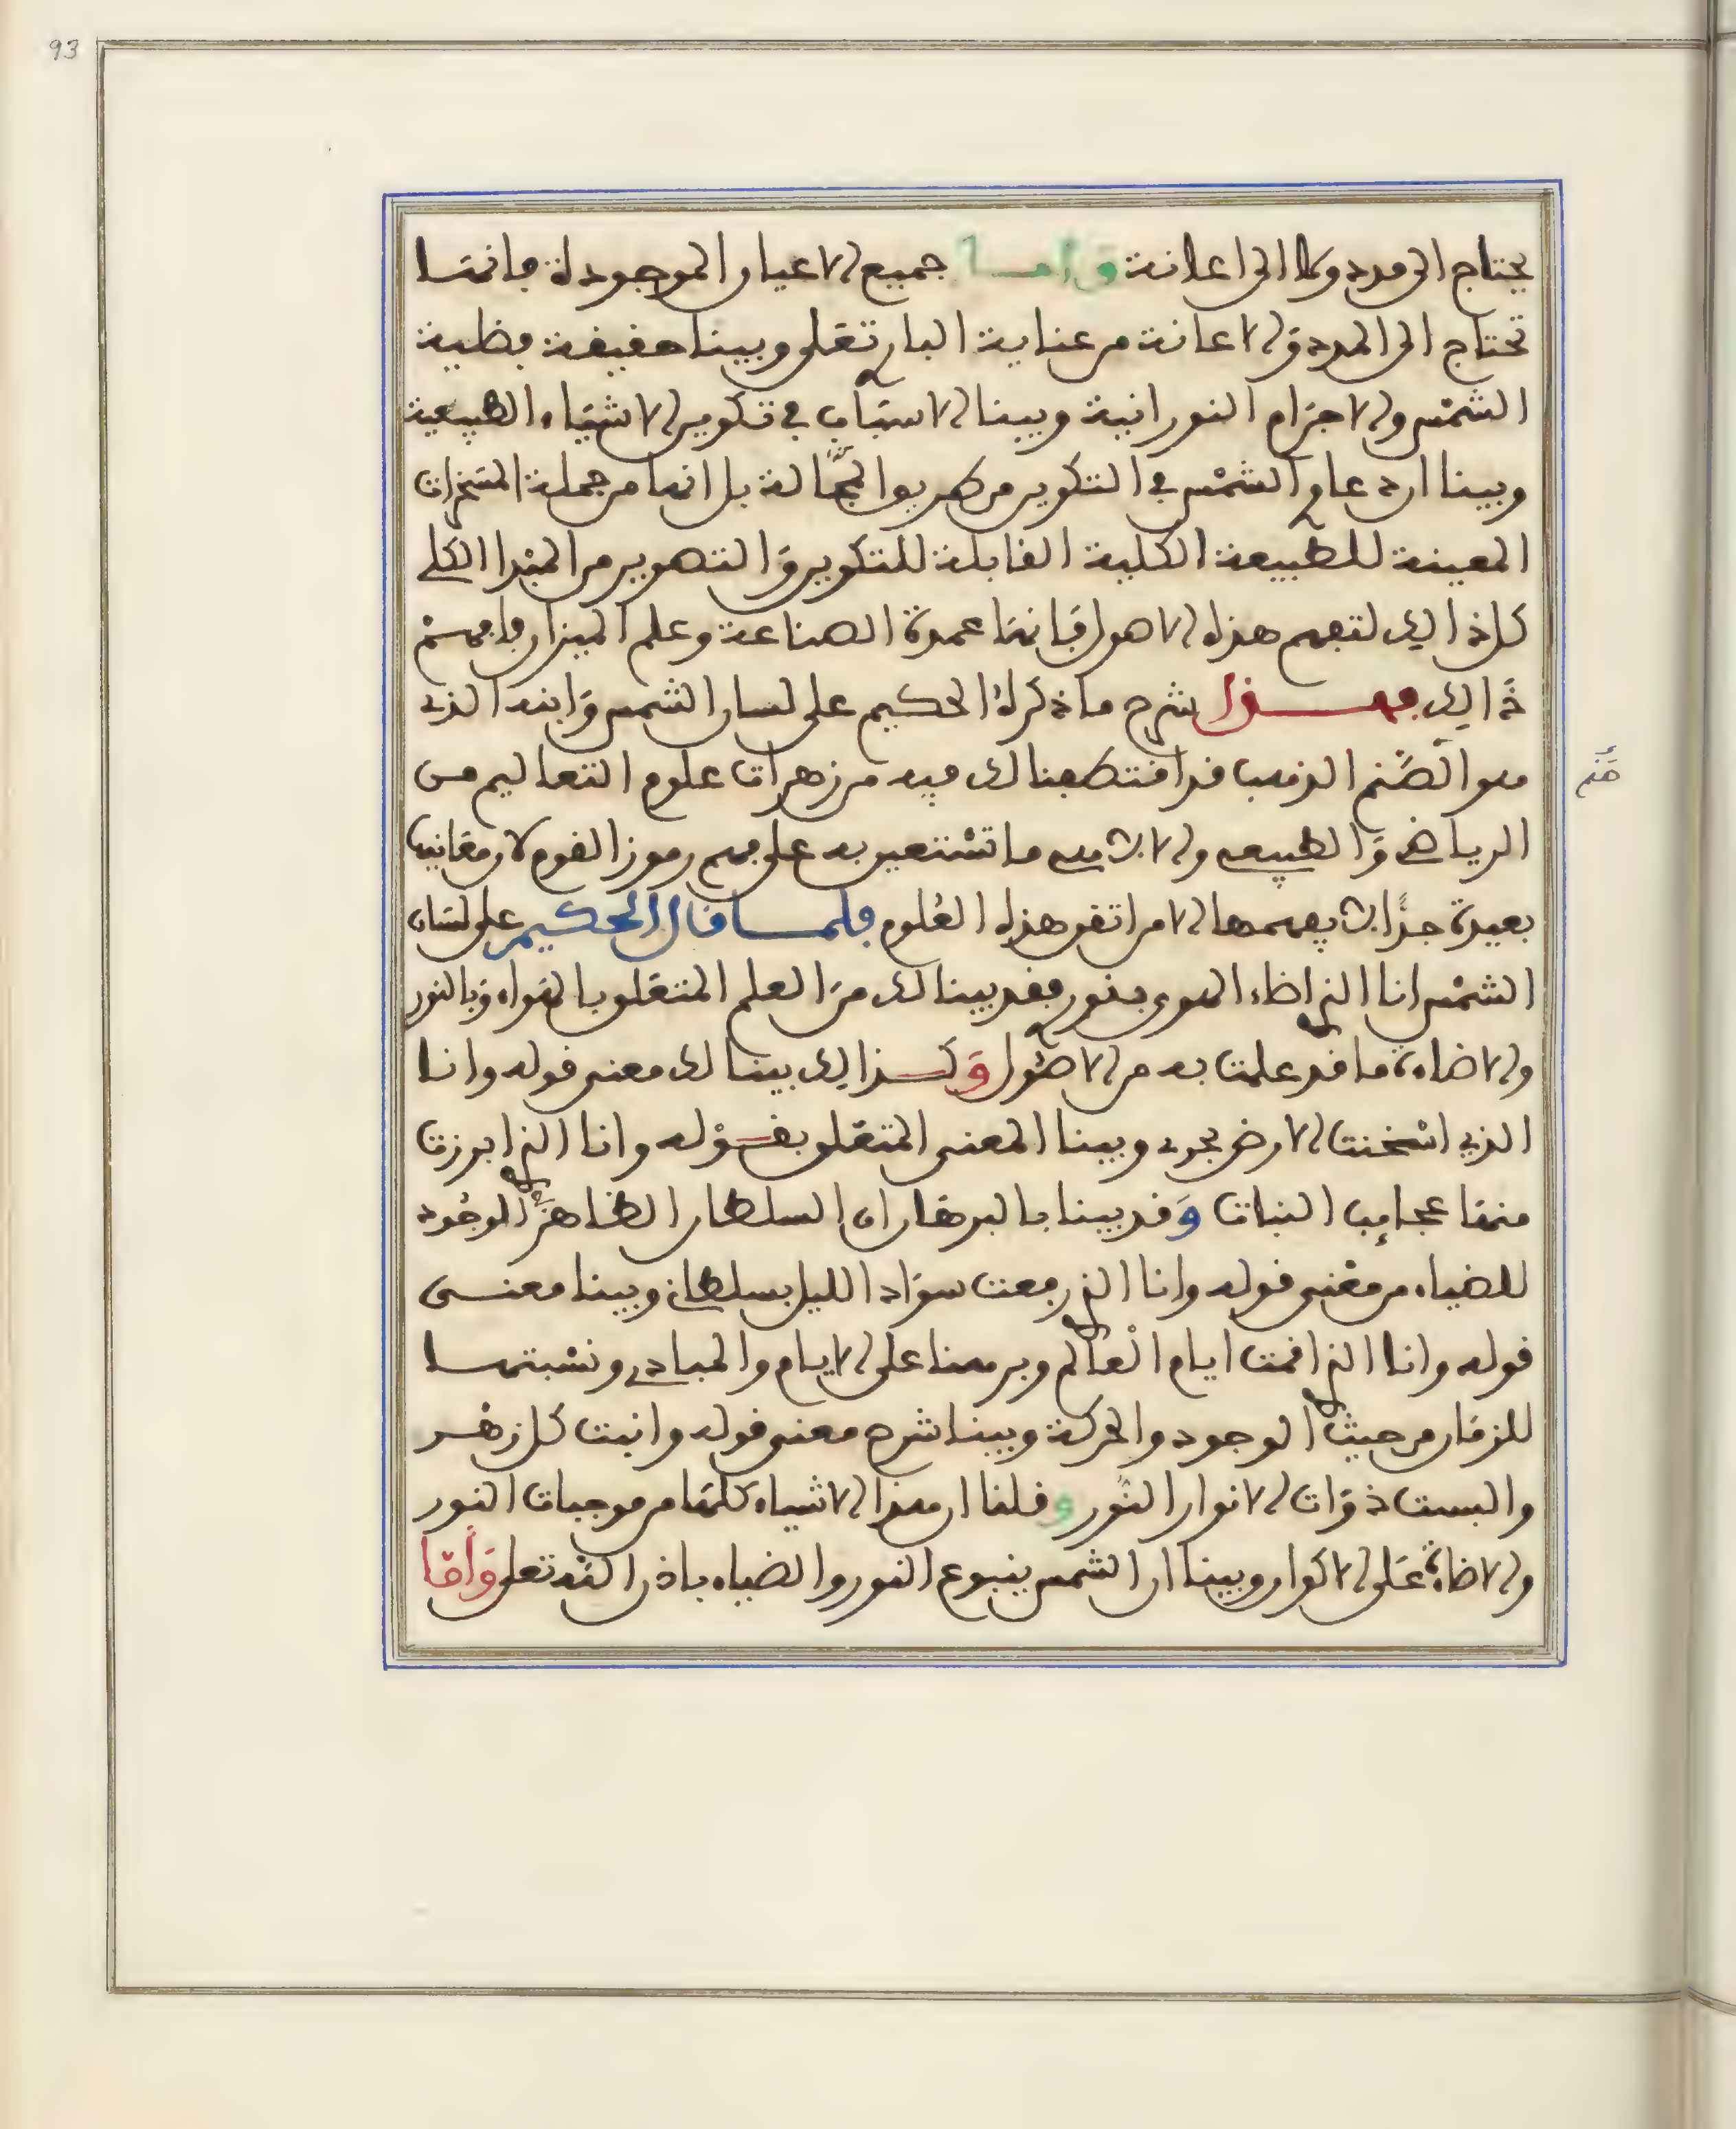 93
يحتاج الى مدد ولا الى اعانة وأما جميع الاعيان الموجودة فانها
تحتاج الى المدد والاعانة من عناية الباري تعلى وبينا حقيقة قطبية
الشمس والاجرام النورانية وبينا الاسباب في تكوين الاشياء الطبيعية
وبينا ان دعاوي الشمس في التكوين من طريق الجهالة بل انها من جملة المسخرات
المعينة للطبيعة الكلية القابلة للتكوين والتصوير من المبدا الكلي
كل ذالك لتفهم هذه الاصول فانها عمدة الصناعة وعلم الميزان فافهم
ذالك فهذا شرح ما ذكره الحكيم على لسان الشمس وابنه الذي
هو الصنم الذهب قد اقتطفنا لك فيه من زهرات علوم التعاليم من
الرياضي والطبيعي والالهي ما تستعين به على فهم رموز القوم لان معانيها
بعيدة جدا لا يفهمها الا من اتقن هذه العلوم فلما قال الحكيم على لسان
الشمس انا الذي اضاء الهوى بنوري فقد بينا لك من العلم المتعلق بالهواء وبالنور
والاضاءة ما قد علمت به من الاصول وكذالك بينا لك معنى قوله وانا
الذي اسخنت الارض بحري وبينا المعنى المتعلق بقوله وانا الذي ابرزت
منها عجايب النبات وقد بينا بالبرهان ان السلطان الظاهر في الوجود
للضياء من معنى قوله وانا الذي رفعت سواد الليل بسلطاني وبينا معنى
قوله وانا الذي اقمت ايام العالم وبرهنا على الايام والمبادي ونسبتها
للزمان من حيث الوجود والحركة وبينا شرح معنى قوله وانبت كل زهر
والبست ذوات الانوار النور وقلنا ان هذه الاشياء كلها من موجبات النور
والاضاءة على الاكوان وبينا ان الشمس ينبوع النور والضياء باذن الله تعلى وأما